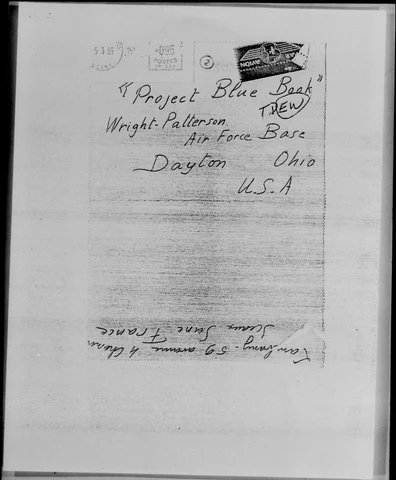 0095
POSTES
PAR AVION
2
"Project Blue Book"
TDEW
Wright-Patterson
Air Force Base
Dayton Ohio
U.S.A
59 avenue
Sceaux Seine France